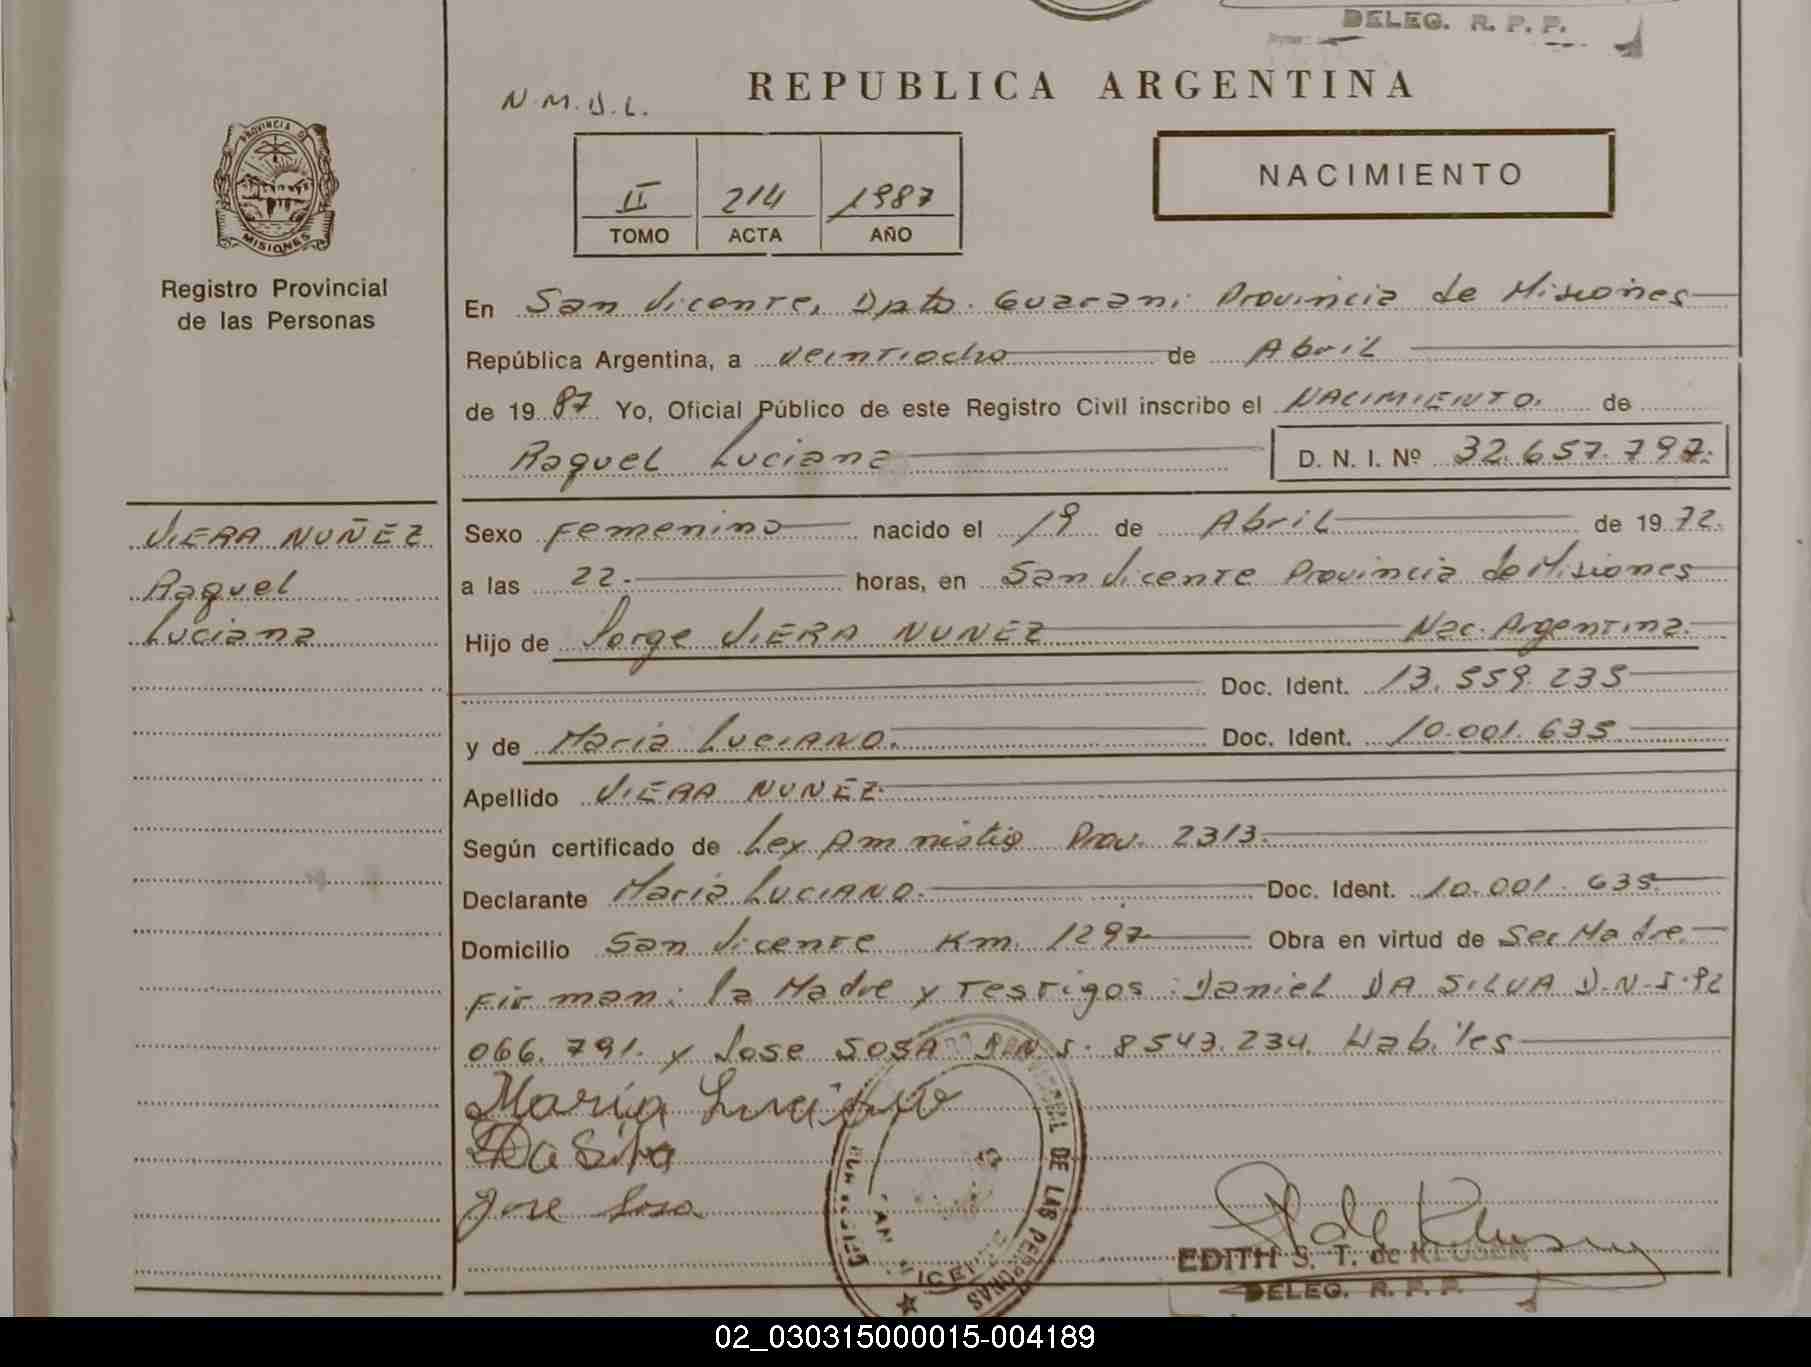 DELEG. R. P. P.
REPUBLICA ARGENTINA
N.M.J.L.
II 214 1987
TOMO ACTA AÑO
NACIMIENTO
PROVINCIA D
MISIONES
Registro Provincial
de las Personas
En San Vicente, Dpto. Guarani Provincia de Misiones
República Argentina, a veintiocho de Abril
de 19 87 Yo, Oficial Público de este Registro Civil inscribo el NACIMIENTO. de
Raquel Luciana D. N. I. Nº 32.657.797.
VIERA NUÑEZ
Raquel
Luciana
Sexo Femenino nacido el 19 de Abril de 19 72.
a las 22.- horas, en San Vicente Provincia de Misiones
Hijo de Jorge VIERA NUNEZ Nac. Argentina.
Doc. Ident. 13.559.235
y de Maria LUCIANO. Doc. Ident. 10.001.635
Apellido VIERA NUNEZ.
Según certificado de Ley Amnistia Prov. 2313.
Declarante Maria LUCIANO. Doc. Ident. 10.001.635.
Domicilio San Vicente Km. 1297 Obra en virtud de Ser Madre.
Firman: la Madre y Testigos: Daniel DA SILVA D.N.I. 92
066.791. y Jose SOSA D.N.I. 8543.234. Habiles
María Luciano
Da Silva
Jose Sosa
DE LAS PERSONAS
EDITH S. T. de
DELEG. R. P. P.
02_030315000015-004189